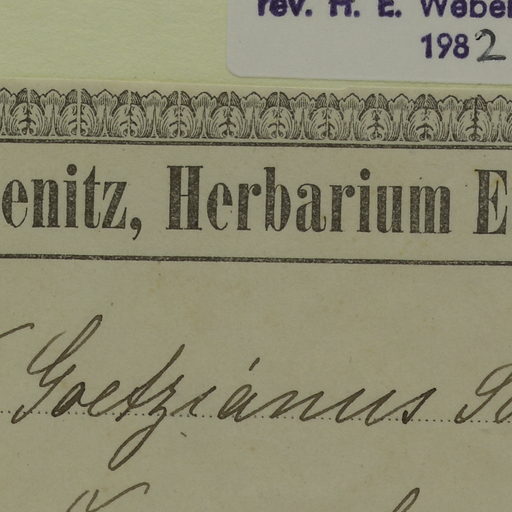 rev. H. E. Weber
1982
enitz, Herbarium E
Goetziánus S